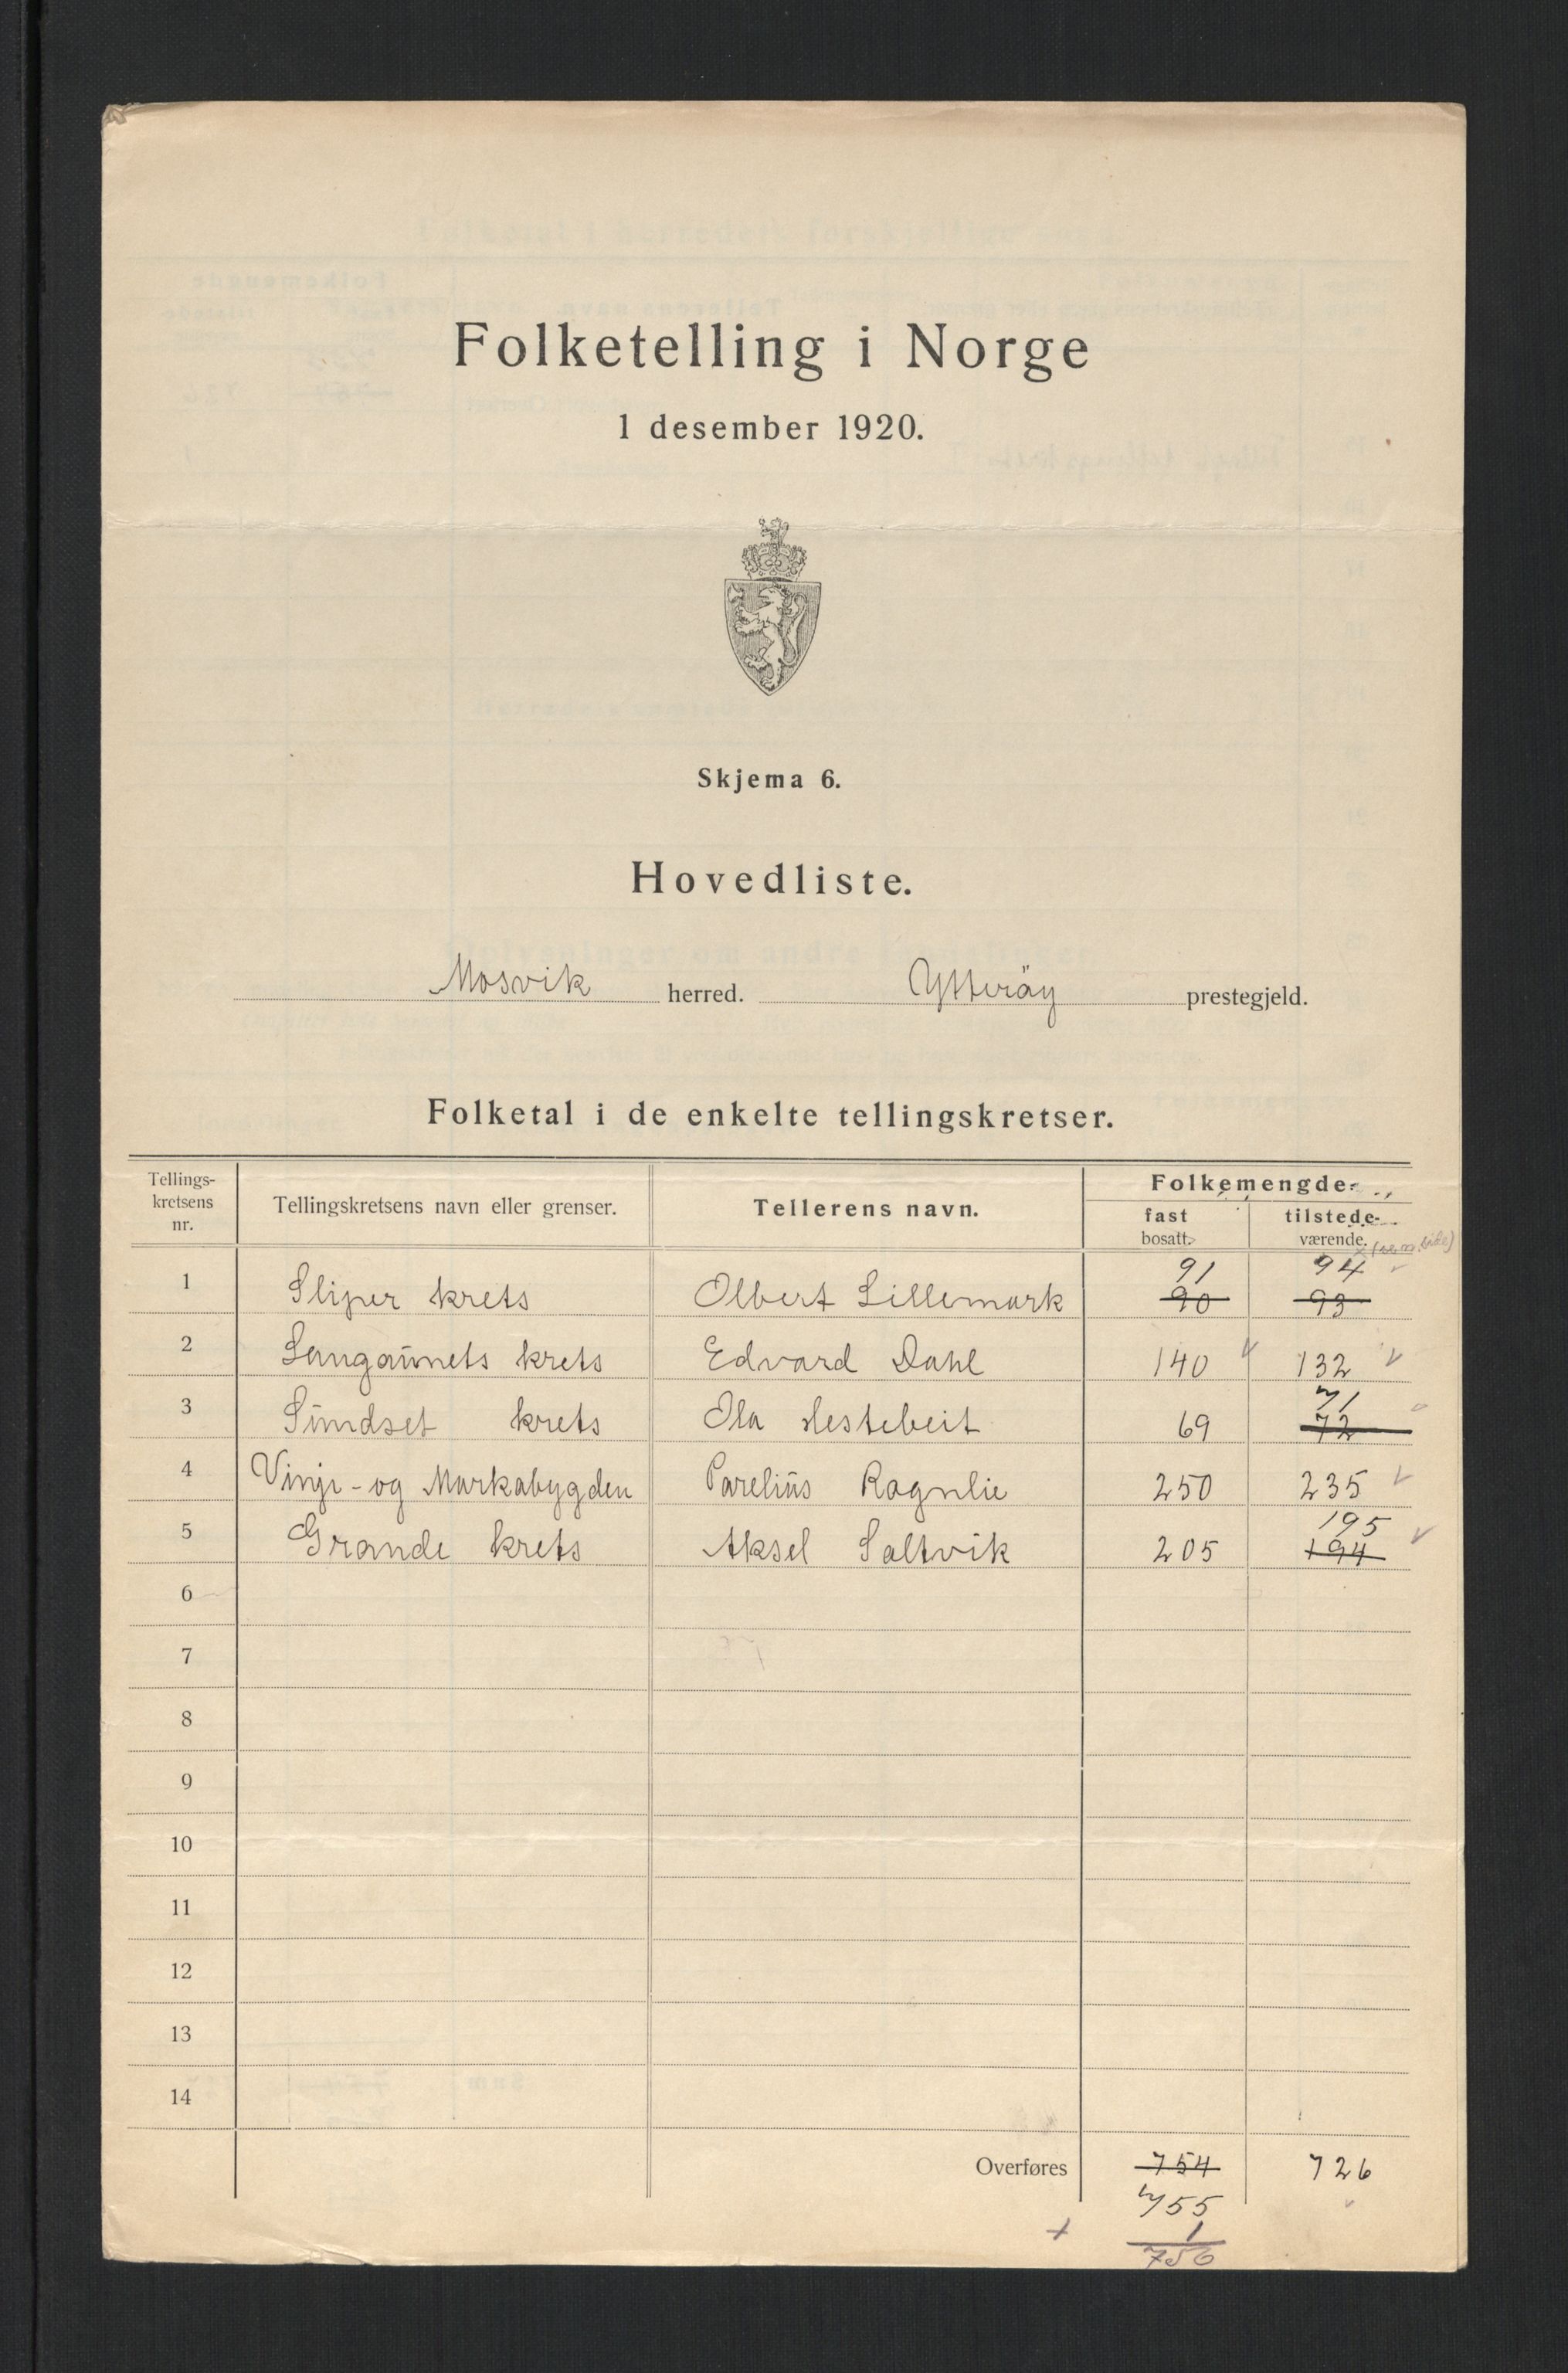 Folketelling i Norge
1 desember 1920.
Skjema 6.
Hovedliste.
Mosvik herred. Ytteröy prestegjeld.
Folketal i de enkelte tellingskretser.
Tellings-kretsens nr. Tellingskretsens navn eller grenser. Tellerens navn. Folkemengde.
fast bosatt. tilstede-værende.
91 94
1 Sliper krets Olbert Lillemark 90 93
2 Langaunets krets Edvard Dahl 140 132
71
3 Sundset krets Ola Hestebeit 69 72
4 Vinje- og Markabygden Parelius Ragnlie 250 235
195
5 Grande krets Aksel Saltvik 205 194
6
7
8
9
10
11
12
13
14
Overføres 754 726
755
+ 1
756